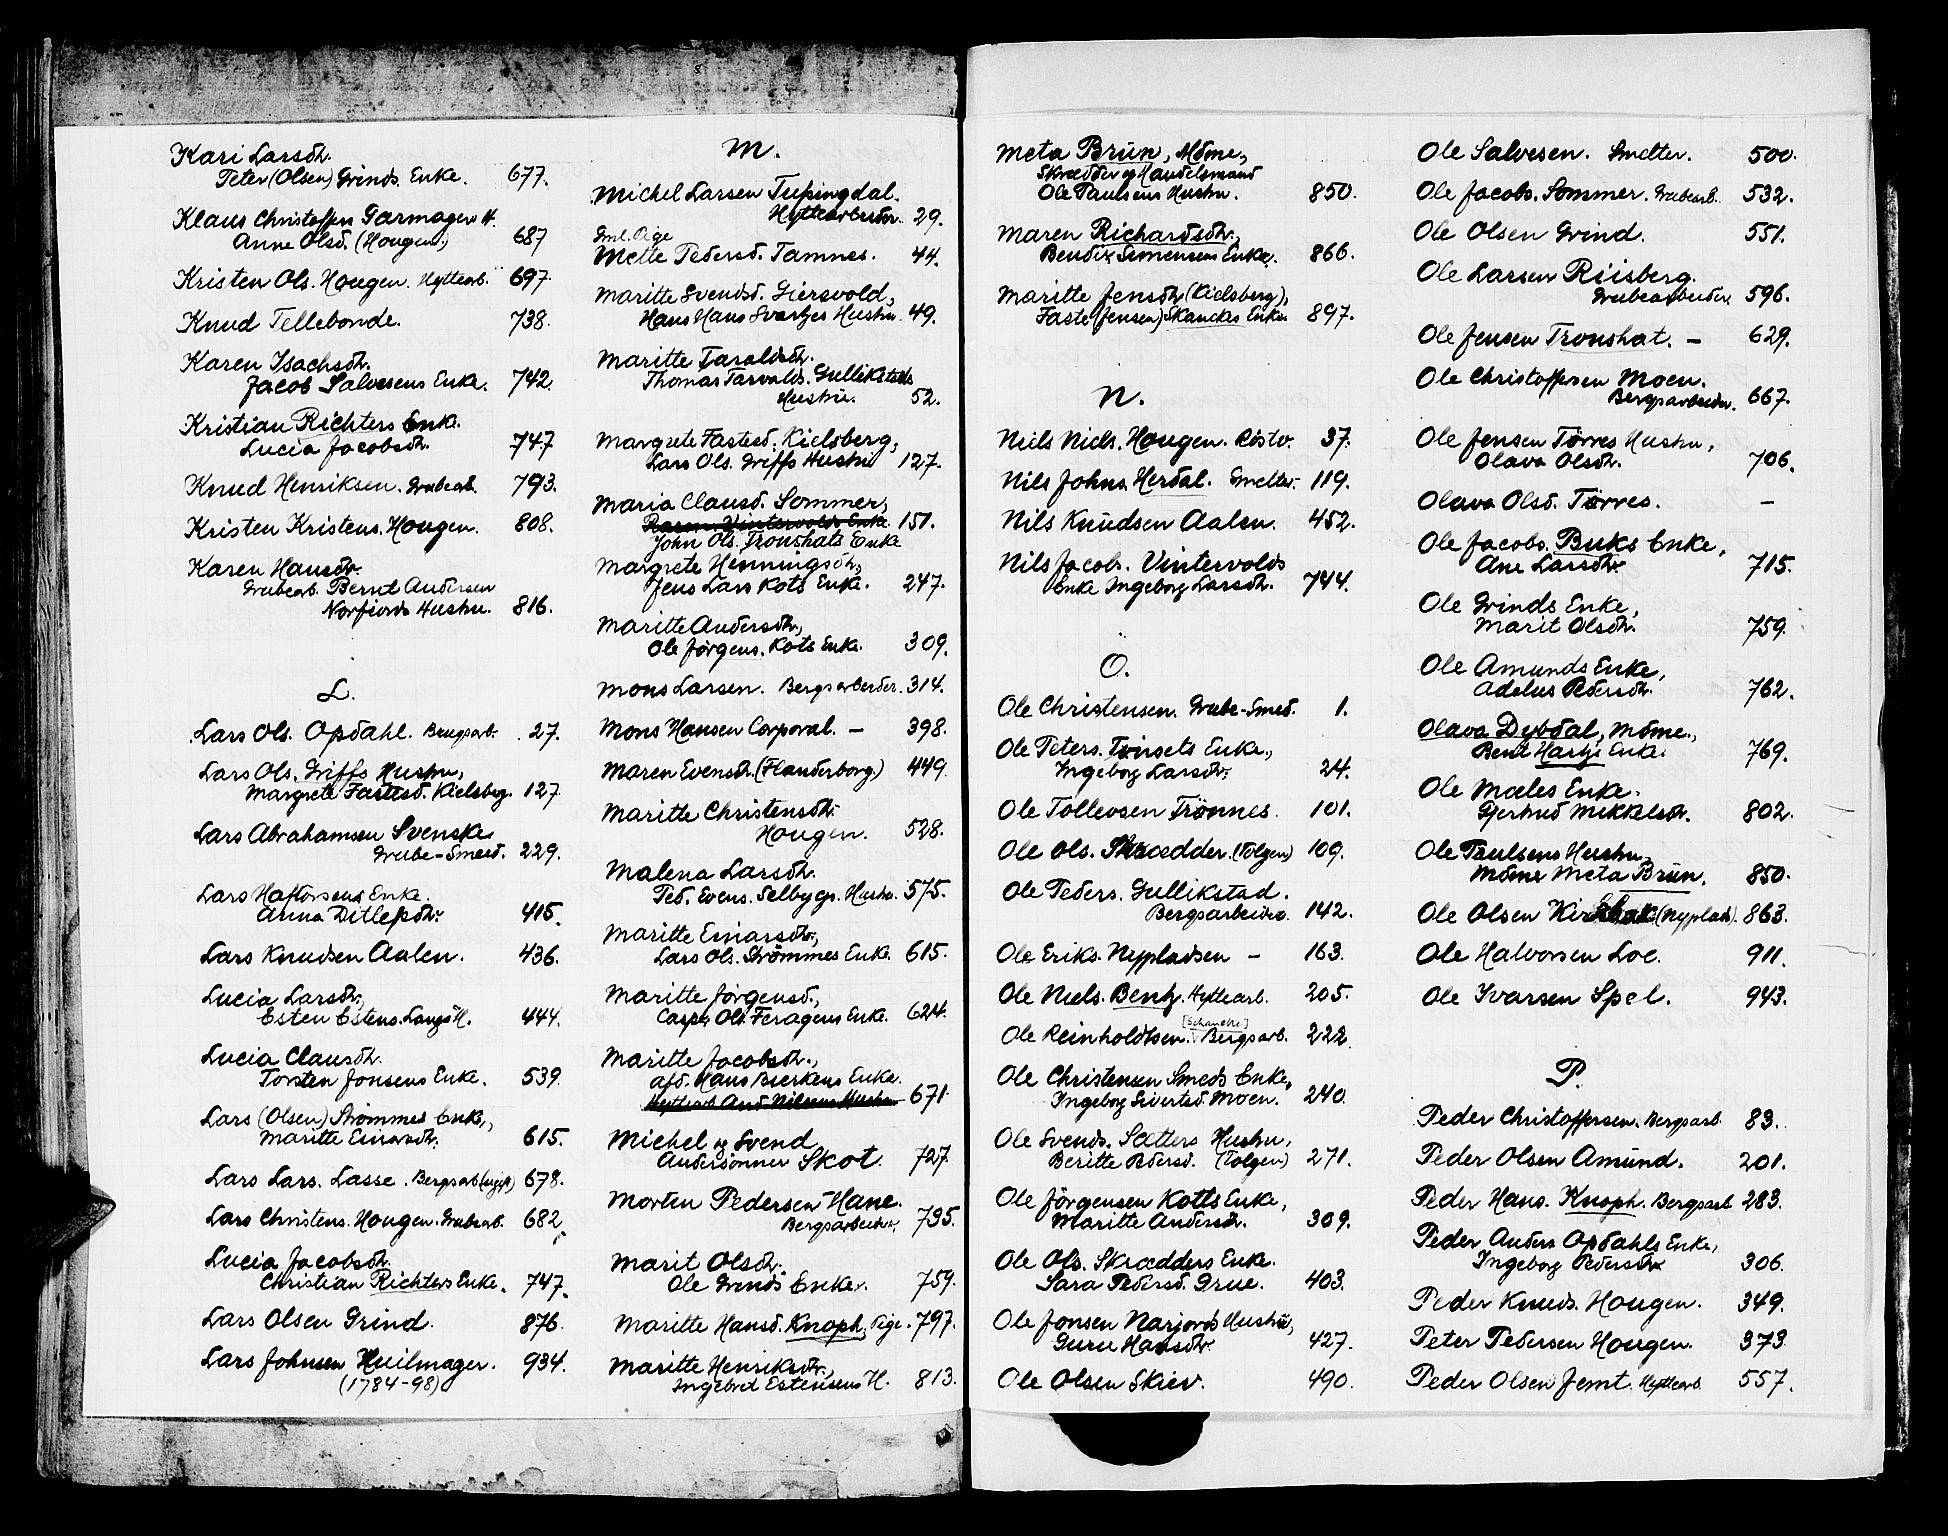 Kari Larsdr.
Peter (Olsen) Grinds Enke. 677.
Klaus Christoffers Garmagers H.
Anne Olsd. (Hougen.) 687
Kristen Ols. Hougen. Hyttearb. 697.
Knud Tellebonde. 738.
Karen Isachsdr.
Jacob Salvesens Enke. 742.
Kristian Richters Enke.
Lucia Jacobsdr. 747
Knud Henriksen. Grubearb. 793.
Kristen Kristens. Hougen. 808.
Karen Hansdr.
Grubearb. Bernt Andersen
Norfjords Hustru. 816.
L.
Lars Ols. Opdahl. Bergsarb. 27.
Lars Ols. Griffs Hustru,
Margrete Fastesd. Kielsberg. 127.
Lars Abrahamsen Svenske
Grube-Smed. 229.
Lars Haftorsens Enke.
Anna Ditlefsdr. 415.
Lars Knudsen Aalen. 436.
Lucia Larsdr.,
Esten Estens. Langs H. 444.
Lucia Clausdr.
Torsten Jonsens Enke. 539.
Lars (Olsen) Strømmes Enke,
Maritte Einarsdr. 615.
Lars Lars. Lasse. Bergsarb. 678.
Lars Christens. Hougen. Grubearb. 682.
Lucia Jacobsdr.
Christian Richters Enke. 747.
Lars Olsen Grind. 876.
Lars Johnsen Huilmager. 934.
(1784-98)
M.
Michel Larsen Tufsingdal.
Hyttearbeider. 29.
Gml. Pige
Mette Pedersd. Tamnes. 44.
Maritte Svendsd. Giersvold,
Hans Hans Svartjes Hustru. 49.
Maritte Taraldsdr.
Thomas Tarvalds. Gullikstads
Hustru. 52.
Margrete Fastesd. Kielsberg,
Lars Ols. Griffs Hustru 127.
Maria Clausd. Sommer,
151.
John Ols. Tronshats Enke
Margrete Henningsdr.,
Jens Lars Kots Enke. 247.
Maritte Andersdr.,
Ole Jørgens. Kots Enke. 309.
Mons Larsen. Bergsarbeider. 314.
Mons Hansen Corporal. — 398.
Maren Evensdr. (Flanderborg.) 449.
Maritte Christensdr.
Hougen. 528.
Malena Larsdr.
Ped. Evens. Selbygs. Hustru. 575.
Maritte Einarsdr.,
Lars Ols. Strømmes Enke. 615.
Maritte Jørgensd.,
Casper Ols. Feragens Enke. 624.
Maritte Jacobsdr.,
afd. Hans Bierkens Enke.
Hyttearb. And. Nilsens Hustru 671.
Michel og Svend
Andersønner Skot. 727.
Morten Pedersen Hane.
Bergsarbeider. 795.
Marit Olsdr.
Ole Grinds Enke. 759.
Maritte Hansd. Knoph, Pige. 797.
Maritte Henriksdr.,
Ingebret Estensens H. 813.
Meta Brun, Mdme,
Skrædder og Handelsmand
Ole Paulsens Hustru. 850.
Maren Richardsdr.,
Bendix Simensens Enke. 866.
Maritte Jensdr. (Kielsberg),
Faste (Jensen) Skanckes Enke. 897.
N.
Niels Niels. Hougen. Røstv. 37.
Nils Johns. Herdal. Smelter. 119.
Nils Knudsen Aalen. 452.
Nils Jacobs. Vintervolds
Enke Ingeborg Larsdr. 744.
O.
Ole Christensen. Grube-Smed. 1.
Ole Peters. Tvirsets Enke,
Ingeborg Larsdr. 24.
Ole Tollevsen Trønnes. 101.
Ole Ols. Skrædder. (Tolgen) 109.
Ole Peders. Gullikstad.
Bergsarbeider. 142.
Ole Eriks. Nypladsen — 163.
Ole Niels. Bentz. Hyttearb. 205.
Ole Reinholdtsen. [Schancke] Bergsarb. 222.
Ole Christensen Smeds Enke,
Ingeborg Sivertsd. Moen. 240.
Ole Svends. Sætters Hustru,
Beritte Pedersd. (Tolgen) 271.
Ole Jørgensen Kotts Enke,
Maritte Andersdr. 309.
Ole Ols. Skrædders Enke.
Sara Pedersd. Grue. 403.
Ole Jonsen Narjords Hustru,
Guru Hansdr. 427.
Ole Olsen Skiev. 490.
Ole Salvesen. Smelter. 500.
Ole Jacobs. Sommer. Grubearb. 532.
Ole Olsen Grind. 551.
Ole Larsen Riisberg.
Grubearbeider. 596.
Ole Jensen Tronshat. — 629.
Ole Christoffersen Moen.
Bergsarbeider. 667.
Ole Jensen Tørres Hustru,
Olava Olsdr. 706.
Olava Olsd. Tørres. —
Ole Jacobs. Buks Enke,
Ane Larsdr. 715.
Ole Grinds Enke,
Marit Olsdr. 759.
Ole Amunds Enke,
Adelus Pedersdr. 762.
Olava Dybdal, Mdme.,
Bent Hartz' Enke. 769.
Ole Mæles Enke.
Gjertrud Mikkelsdr. 802.
Ole Paulsens Hustru,
Mdme Meta Brun. 850.
Ole Olsen (Nyplads). 863.
Ole Halvorsen Loe. 911.
Ole Ivarsen Spel. 943.
P.
Peder Christoffersen. Bergsarb. 83.
Peder Olsen Amund. 201.
Peder Hans. Knoph. Bergsarb. 283.
Peder Anders Opdahls Enke,
Ingeborg Pedersdr. 306.
Peder Knuds. Hougen. 349.
Peter Pedersen Hougen. 373.
Peder Olsen Jemt. Hyttearb. 557.